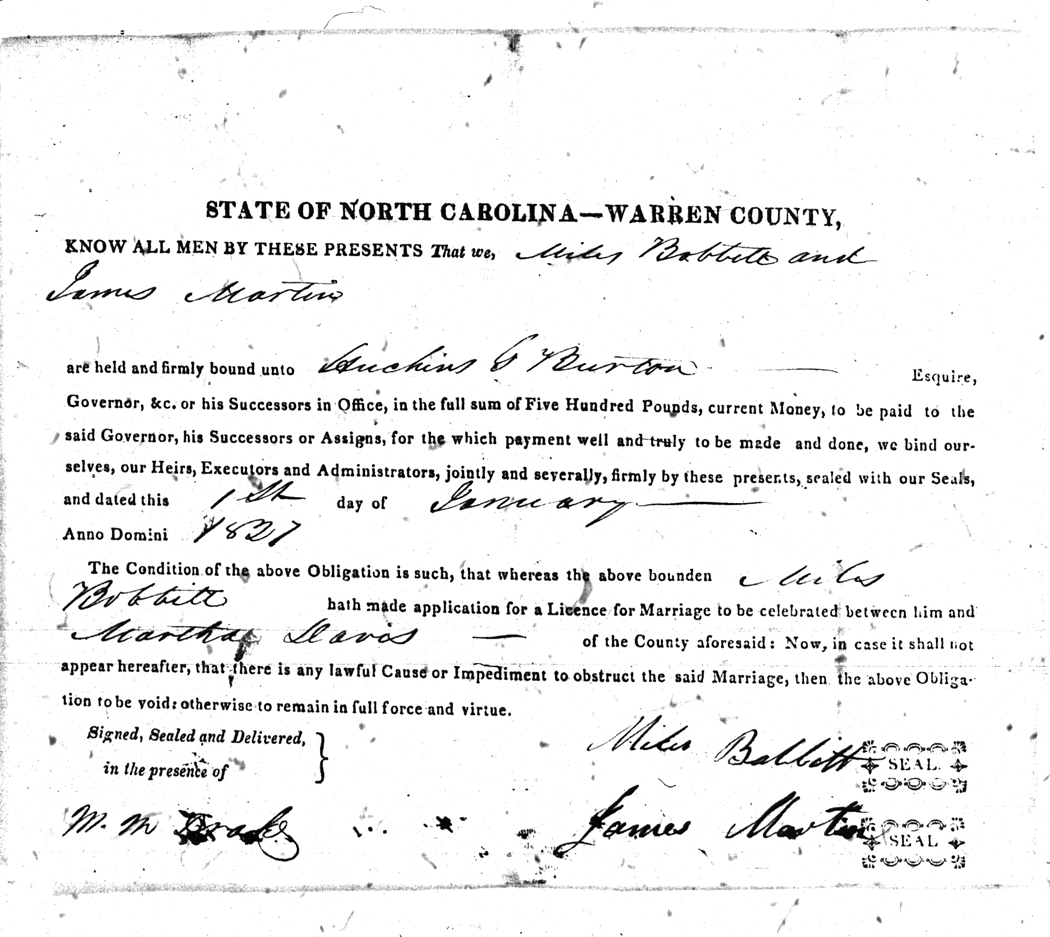 STATE OF NORTH CAROLINA—WARREN COUNTY,
KNOW ALL MEN BY THESE PRESENTS That we, Miles Bobbitt and
James Martin
are held and firmly bound unto Huchins G Burton — Esquire,
Governor, &c. or his Successors in Office, in the full sum of Five Hundred Pounds, current Money, to be paid to the
said Governor, his Successors or Assigns, for the which payment well and truly to be made and done, we bind our-
selves, our Heirs, Executors and Administrators, jointly and severally, firmly by these presents, sealed with our Seals,
and dated this 1st day of January —
Anno Domini 1827
The Condition of the above Obligation is such, that whereas the above bounden Miles
Bobbitt hath made application for a Licence for Marriage to be celebrated between him and
Martha Davis — of the County aforesaid: Now, in case it shall not
appear hereafter, that there is any lawful Cause or Impediment to obstruct the said Marriage, then the above Obliga-
tion to be void: otherwise to remain in full force and virtue.
Signed, Sealed and Delivered,
in the presence of
Miles Bobbitt SEAL.
M. M Drake
James Martin SEAL